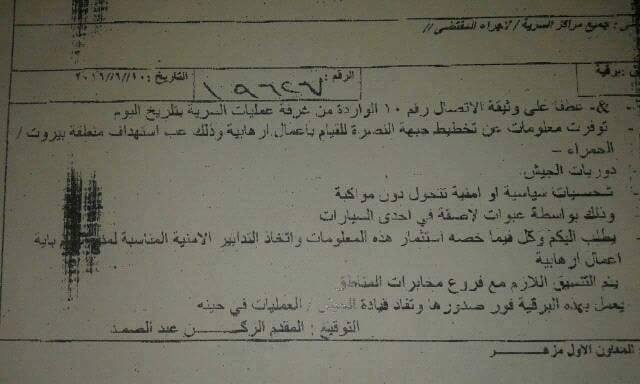 : جميع مراكز السرية / لاجراء المقتضى //
: برقية
الرقم :
١٩٦٤٧
التاريخ : ٢٠١٦/٦/١٠
&- عطفا على وثيقة الاتصال رقم ١٠ الواردة من غرفة عمليات السرية بتاريخ اليوم
توفرت معلومات عن تخطيط جبهة النصرة للقيام باعمال ارهابية وذلك عب استهداف منطقة بيروت /
الحمراء –
دوريات الجيش.
شخصيات سياسية او امنية تتجول دون مواكبة
وذلك بواسطة عبوات لاصقة في احدى السيارات
يطلب اليكم وكل فيما خصه استثمار هذه المعلومات واتخاذ التدابير الامنية المناسبة باية
اعمال ارهابية
يتم التنسيق اللازم مع فروع مخابرات المناطق
يعمل بهذه البرقية فور صدورها وتفاد قيادة الجيش / العمليات في حينه
التوقيع : المقدم الركن عبد الصمد
المعاون الاول مزهر